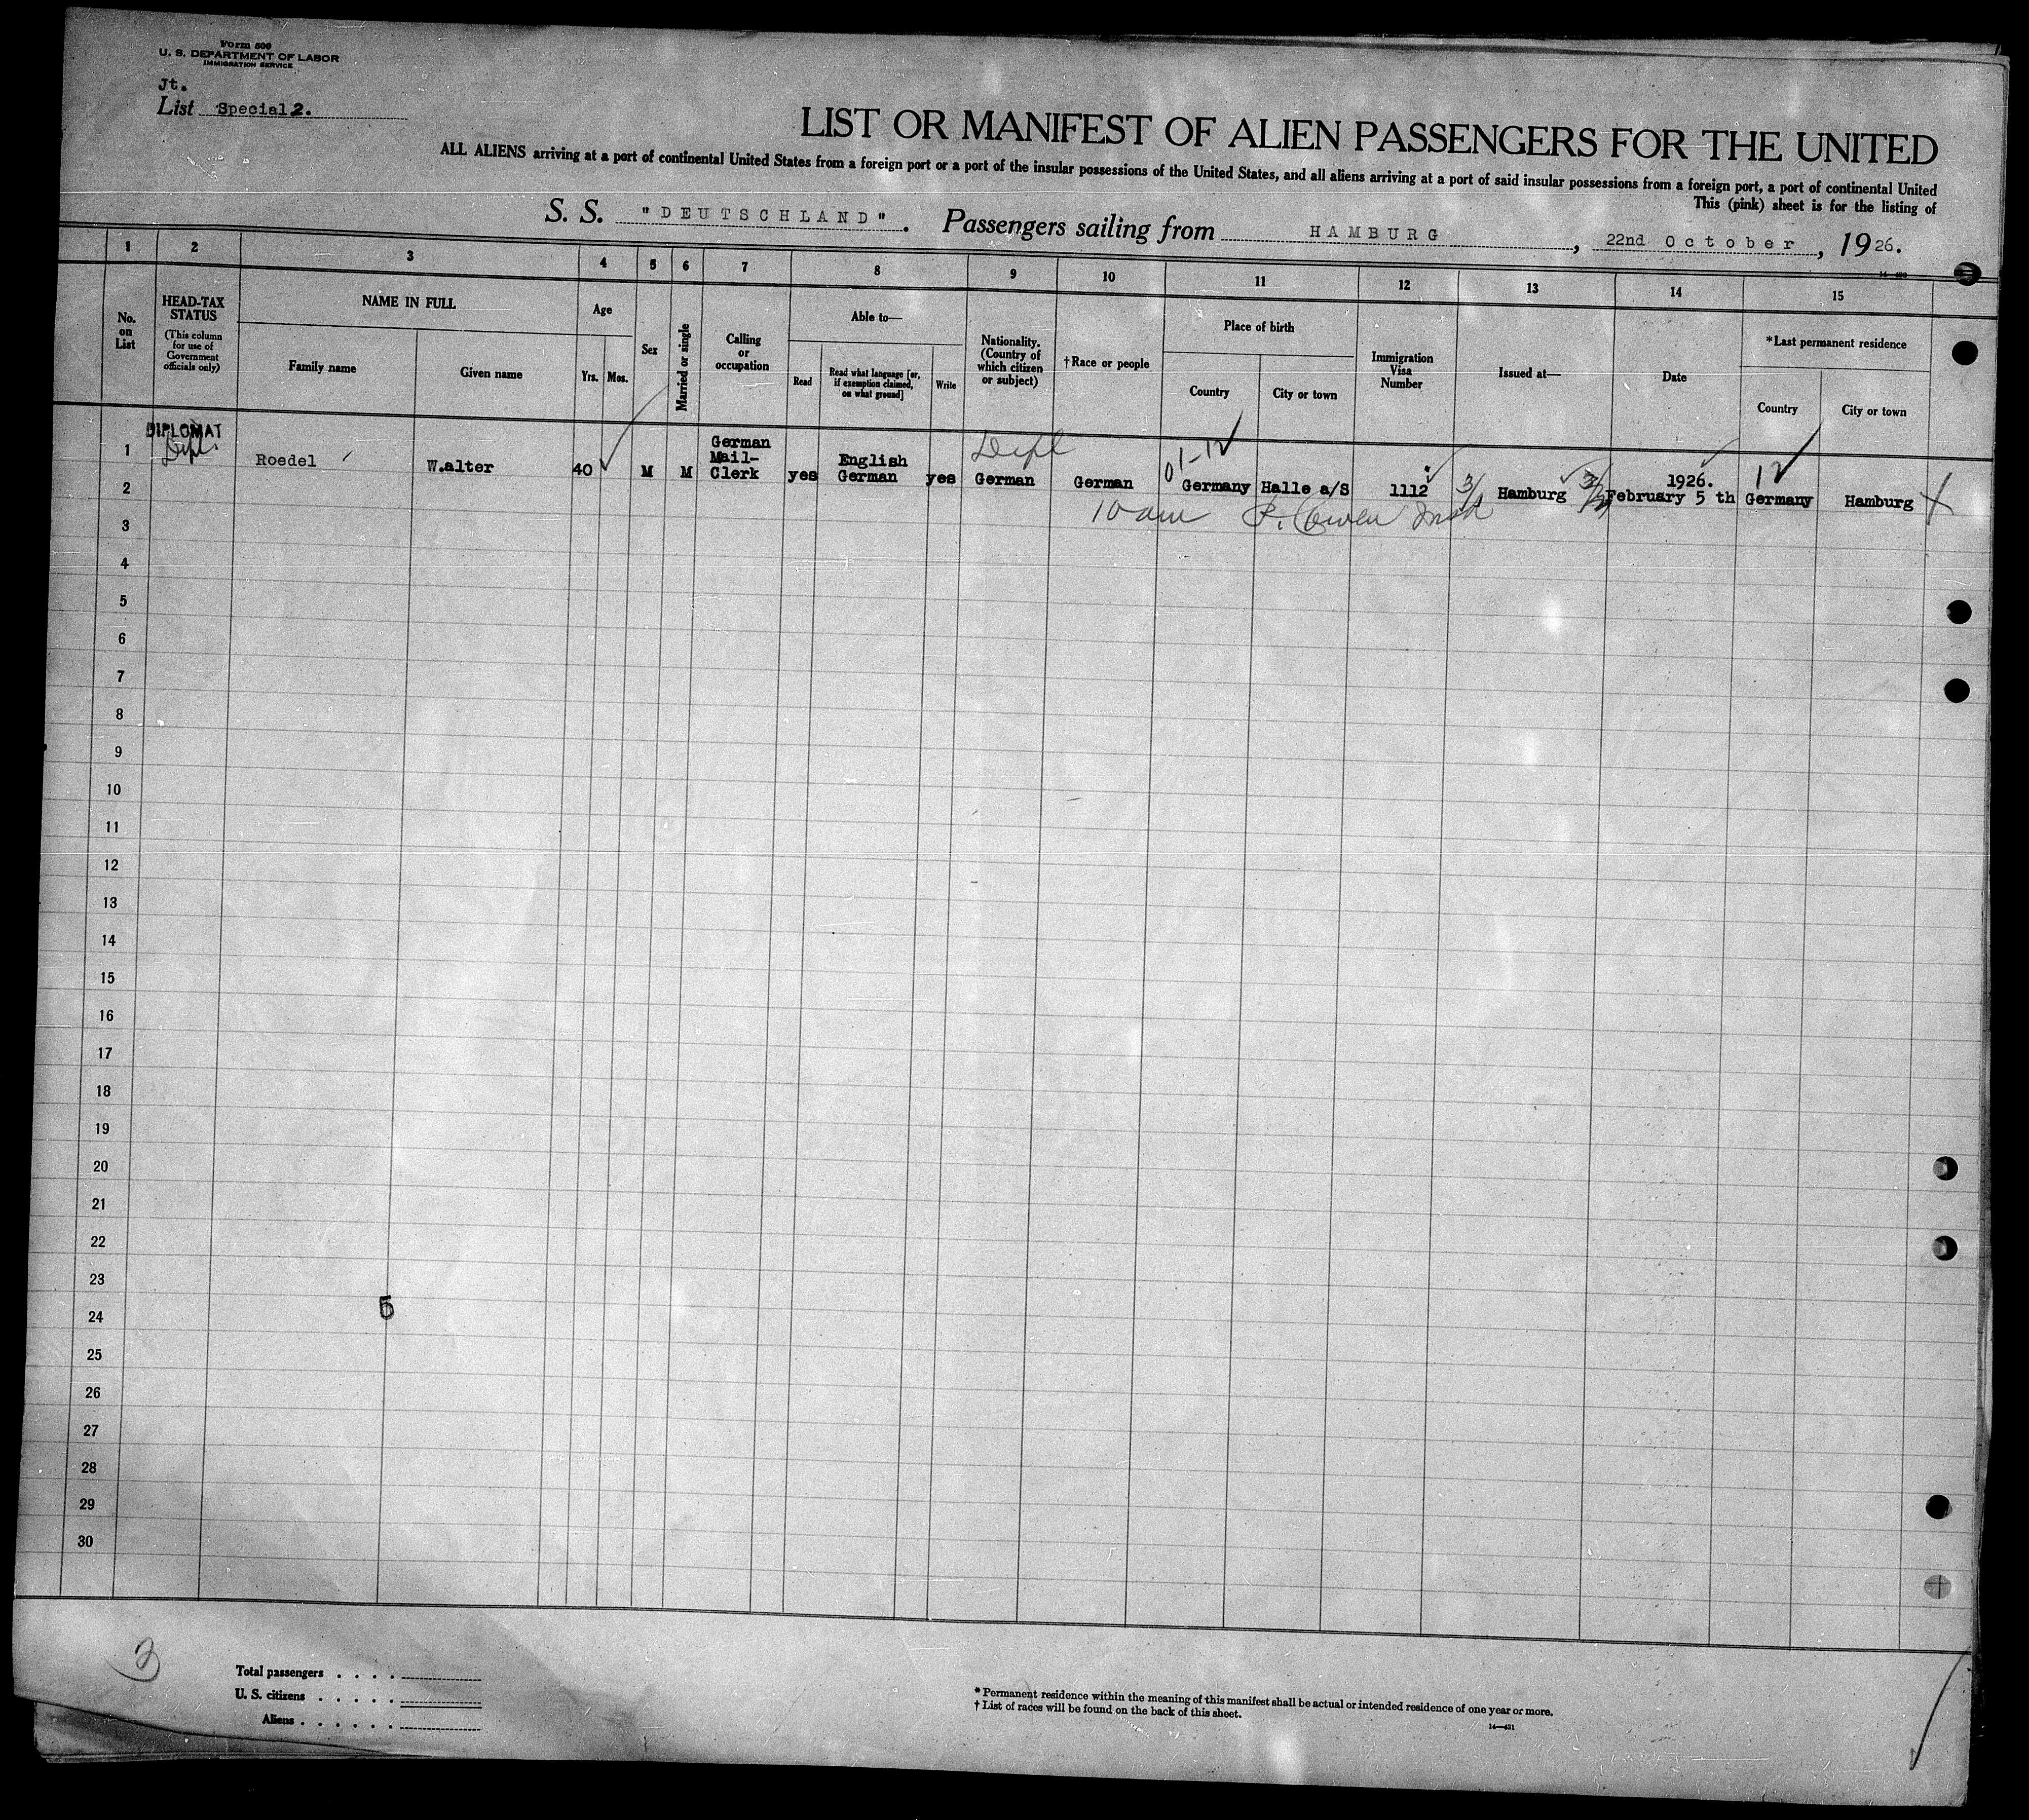 Form 500
U. S. DEPARTMENT OF LABOR
IMMIGRATION SERVICE
Jt.
List Special 2.
LIST OR MANIFEST OF ALIEN PASSENGERS FOR THE UNITED
ALL ALIENS arriving at a port of continental United States from a foreign port or a port of the insular possessions of the United States, and all aliens arriving at a port of said insular possessions from a foreign port, a port of continental United
This (pink) sheet is for the listing of
S. S. "DEUTSCHLAND". Passengers sailing from HAMBURG, 22nd October, 1926.
1 2 3 4 5 6 7 8 9 10 11 12 13 14 15
No. on List
HEAD-TAX STATUS
(This column for use of Government officials only)
NAME IN FULL
Family name
Given name
Age
Yrs. Mos.
Sex
Married or single
Calling or occupation
Able to—
Read
Read what language [or, if exemption claimed, on what ground]
Write
Nationality. (Country of which citizen or subject)
†Race or people
Place of birth
Country
City or town
Immigration Visa Number
Issued at—
Date
*Last permanent residence
Country
City or town
DIPLOMAT
Dipl.
1 Roedel W.alter 40 M M German Mail-Clerk yes English German yes Dipl German German 01-12 Germany Halle a/S 1112 Hamburg 1926. February 5 th 12 Germany Hamburg X
10 am
2
3
4
5
6
7
8
9
10
11
12
13
14
15
16
17
18
19
20
21
22
23
24
25
26
27
28
29
30
5
3
Total passengers . . . .
U. S. citizens . . . . .
Aliens . . . . . .
* Permanent residence within the meaning of this manifest shall be actual or intended residence of one year or more.
† List of races will be found on the back of this sheet.
14—431